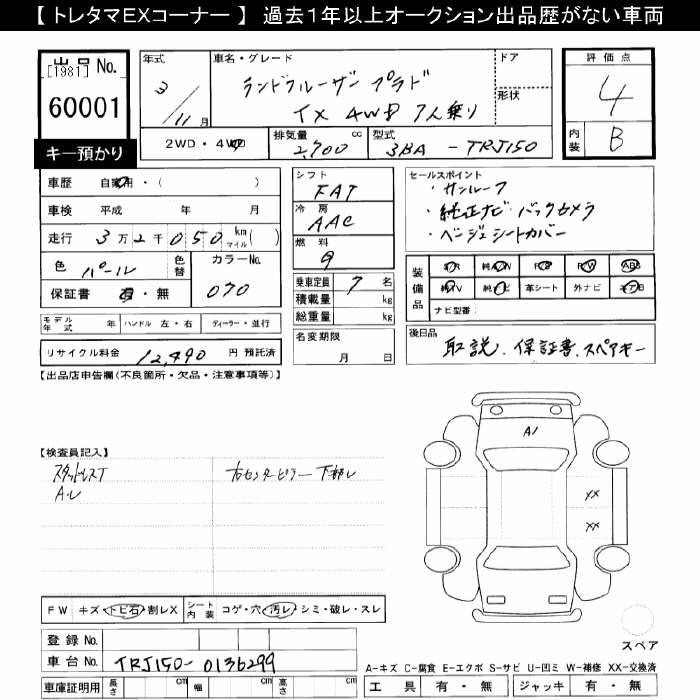 【 トレタマEXコーナー 】 過去1年以上オークション出品歴がない車両
出品 No.
[1981]
60001
キー預かり
年式 3/11月
車名・グレード ランドクルーザー プラド
TX 4WD 7人乗り
ドア
形状
2WD・4WD 排気量 2,700 cc 型式 3BA - TRJ150
評価点 4
内装 B
車歴 自家用・( )
車検 平成 年 月
走行 3万2千050 km マイル ( )
色 パール 色替 カラーNo. 070
保証書 有・無
モデル年式 年 ハンドル 左・右 ディーラー・並行
リサイクル料金 12,490 円 預託済
シフト FAT
冷房 AAC
燃料
乗車定員 7 名
積載量 kg
総重量 kg
名変期限 月 日
セールスポイント
・サンルーフ
・純正ナビ・バックカメラ
・ベージュシートカバー
装備品 SR 純AW PS PW ABS
純TV 純ナビ 革シート 外ナビ エアB
ナビ型番:
後日品 取説、保証書、スペアキー
【出品店申告欄(不良箇所・欠品・注意事項等)】
【検査員記入】
スタッドレスT
右センターピラー 下部レ
A・レ
A1
XX
XX
FW キズ・トビ石・割レX シート内装 コゲ・穴・汚レ・シミ・破レ・スレ
スペア
登録 No.
車台 No. TRJ150-0136299
A-キズ C-腐食 E-エクボ S-サビ U-凹ミ W-補修 XX-交換済
車庫証明用 長さ cm 幅 cm 高さ cm
工具 有・無 ジャッキ 有・無